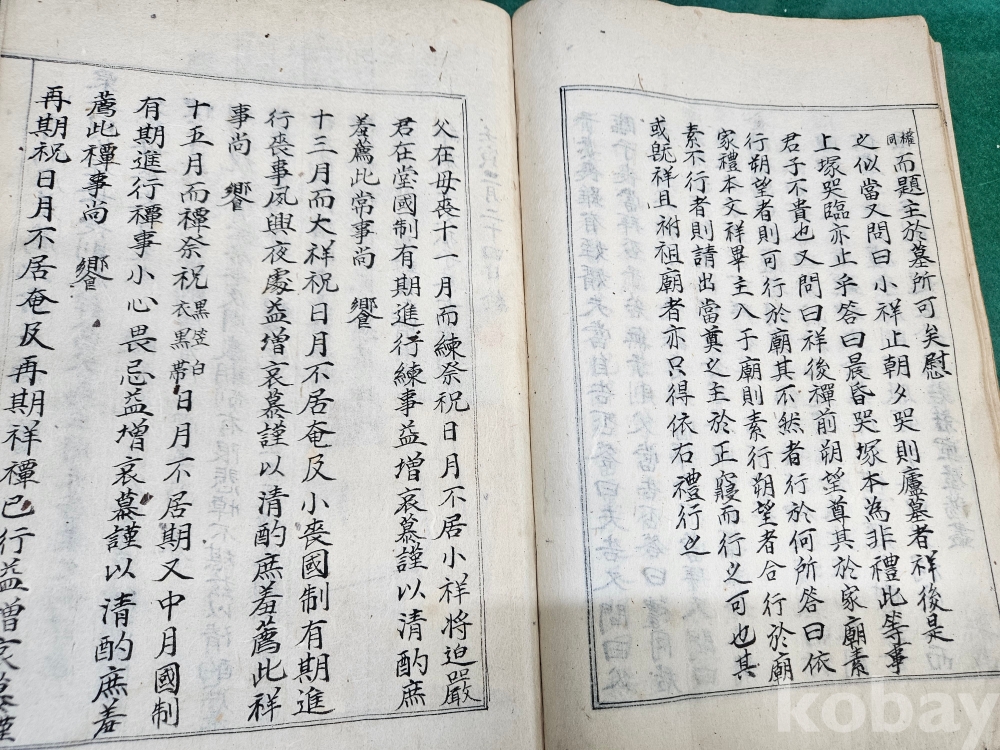 權
同
而題主於墓所可矣慰
之似當又問曰小祥止朝夕哭則廬墓者祥後是而
上塚哭臨亦止乎答曰晨昏哭塚本為非禮此等事
君子不貴也又問曰祥後禫前朔望奠其於家廟素
行朔望者則可行於廟其不然者行於何所答曰依
家禮本文祥畢主入于廟則素行朔望者合行於廟
素不行者則請出當奠之主於正寢而行之可也其
或旣祥且祔祖廟者亦只得依右禮行之
父在母喪十一月而練祭祝日月不居小祥将迫嚴
君在堂國制有期進行練事益增哀慕謹以清酌庶
羞薦此常事尚 饗
十三月而大祥祝日月不居奄及小喪國制有期進
行喪事夙興夜處益增哀慕謹以清酌庶羞薦此祥
事尚 饗
十五月而禫祭祝黒笠白
衣黒帶日月不居期又中月國制
有期進行禫事小心畏忌益增哀慕謹以清酌庶羞
薦此禫事尚 饗
再期祝日月不居奄及再期祥禫已行益增哀慕謹
kobay